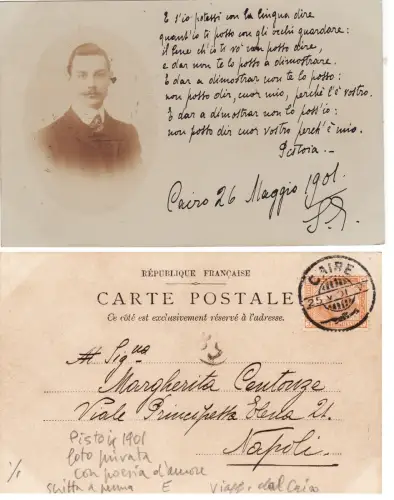 E s'io potessi con la lingua dire
quant'io ti posso con gli occhi guardare:
il bene ch'io ti vò non posso dire,
e dar non te lo posso a dimostrare.
E dar a dimostrar non te lo posso:
non posso dir, cuor mio, perchè l'è vostro.
E dar a dimostrar non lo poss'io:
non posso dir cuor vostro perch'è mio.
Pistoia.
Cairo 26 Maggio 1901.
RÉPUBLIQUE FRANÇAISE
CARTE POSTALE
Ce côté est exclusivement réservé à l'adresse.
CAIRE
25 V 01
Sig.na
Margherita Centonze
Viale Principessa Elena 21.
Napoli.
Pistoia 1901
foto privata
con poesia d'amore
scritta a penna E viagg. dal Cairo